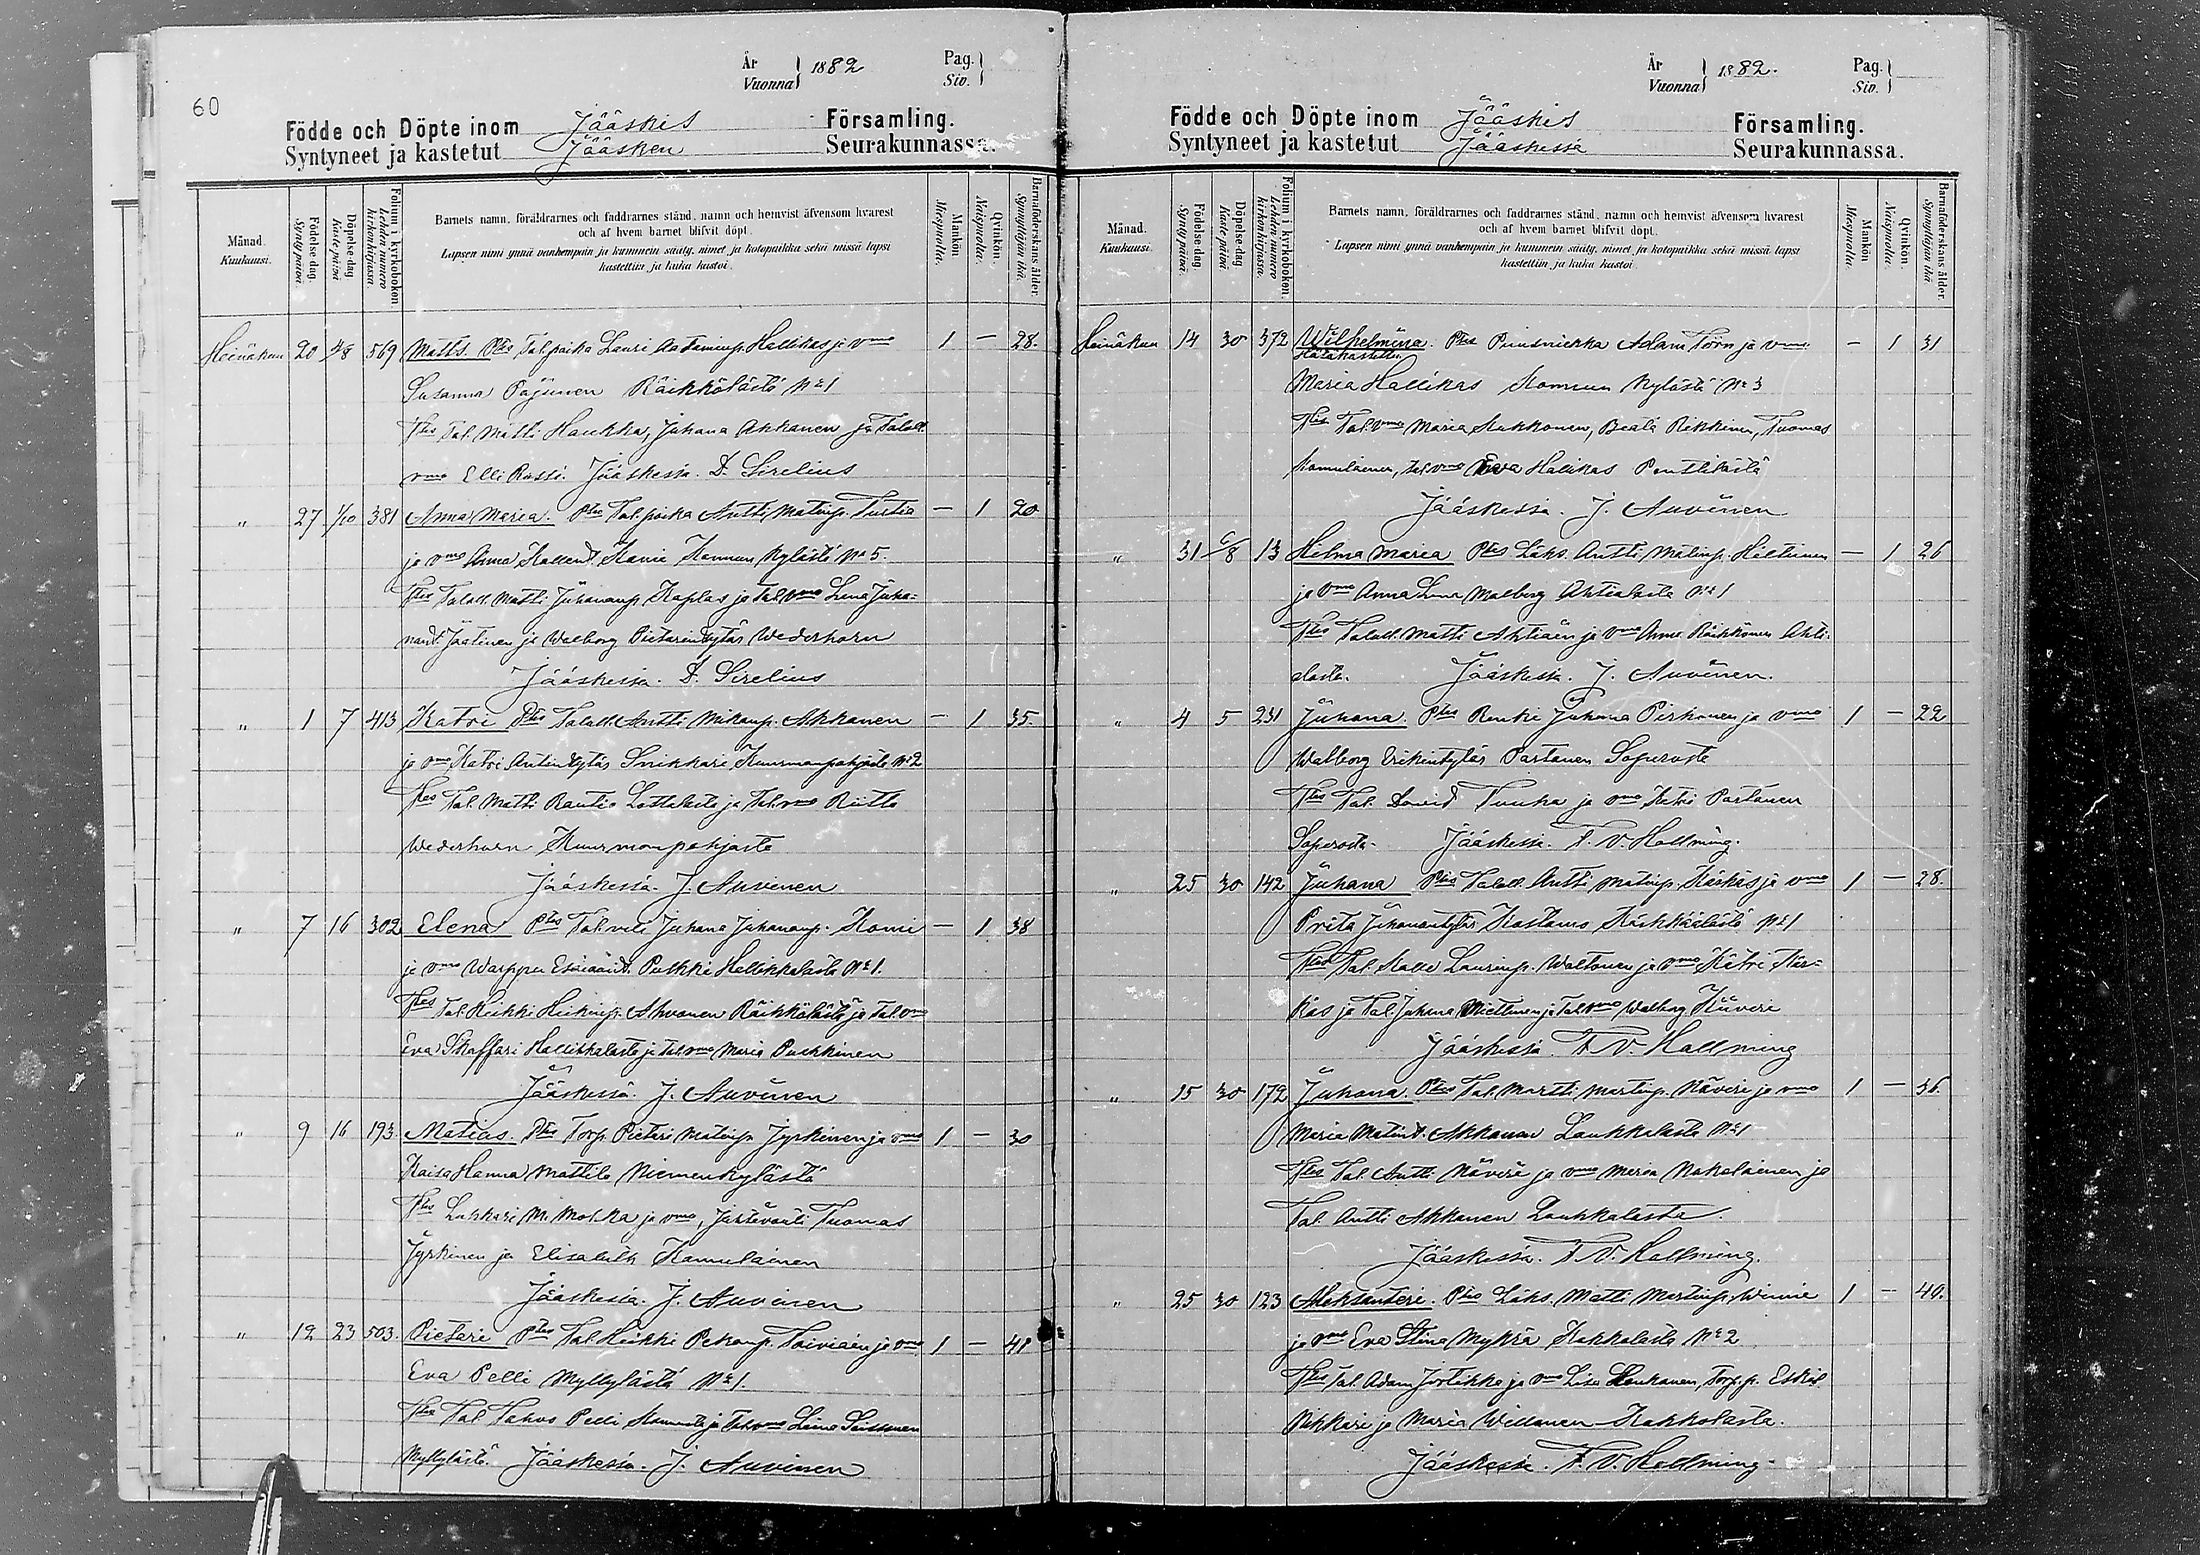 60
År
Vuonna
1882
Pag.
Siv.
Födde och Döpte inom Jääskis Församling.
Syntyneet ja kastetut Jääsken Seurakunnassa.
Månad.
Kuukausi.
Födelse dag.
Synty päivä.
Döpelse dag
Kaste päivä
Folium i kyrkoboken
Lehden numero kirkonkirjassa.
Barnets namn, föräldrarnes och faddrarnes stånd, namn och hemvist äfvensom hvarest
och af hvem barnet blifvit döpt.
Lapsen nimi ynnä vanhempain ja kummein sääty, nimet ja kotopaikka sekä missä lapsi
kastettiin ja kuka kastoi.
Mankön
Miespuolia.
Qvinkön.
Naispuolia.
Barnaföderskans ålder.
Synnyttäjän ikä.
Heinäkuu 20 4/8 569 Matts. Ptes Tal. poika Lauri Aataminp. Hallikas ja vmo 1 — 28.
Susanna Pajunen Räikkölästä No 1
Ttes Tal. Matti Haukka, Juhana Akkanen ja Talall.
vmo Elli Rossi. Jääskessä. D. Sirelius
" 27 1/10 381 Anna Maria. Ptes Tal. poika Antti Matinp. Turtia — 1 20
ja vmo Anna Kallent. Kanie Kannun kylästä No 5.
Ttes Talall. Matti Juhananp. Kaplas ja Tal. vmo Lena Juha-
nant. Jäätinen ja Walborg Pietarintytär Wederhorn
Jääskessä. D. Sirelius
" 1 7 413 Katri Ptes Talall. Antti Mikonp. Akkanen — 1 35.
ja vmo Katri Antintytär Snikkari Kuurmanpohjasta No 2
Ttes Tal. Matti Rautio Lottolasta ja Tal. vmo Riitta
Wederhorn Kuurmanpohjasta
Jääskessä. J. Auvinen
" 7 16 302 Elena Ptes Tal. veli Juhana Juhananp. Komi — 1 38
ja vmo Warppu Esaiaant. Pulkki Hallikkalasta No 1.
Ttes Tal. Heikki Heikinp. Ahvonen Räikkölästä ja Tal. vmo
Eva Skaffari Hallikkalasta ja Tal. vmo Maria Puckkinen
Jääskessä. J. Auvinen
" 9 16 193. Matias. Ptes Torp. Pietari Matinp. Jyrkinen ja vmo 1 — 30
Kaisa Hanna Mattila Niemenkylästä
Ttes Lukkari M. Mokka ja vmo, Jahtivouti Tuomas
Jyrkinen ja Elisabeth Kamulainen
Jääskessä. J. Auvinen
" 12 23 503. Pietari Ptes Tal. Heikki Pekanp. Toiviaen ja vmo 1 — 41
Eva Pelli Myllylästä No 1.
Ttes Tal. Tahvo Pelli Kannusta ja Tal. vmo Liina Suissonen
Myllylästä. Jääskessä. J. Auvinen
År
Vuonna
1882.
Pag.
Siv.
Födde och Döpte inom Jääskis Församling.
Syntyneet ja kastetut Jääskessä Seurakunnassa.
Månad.
Kuukausi.
Födelse dag
Synty päivä.
Döpelse dag
Kaste päivä
Folium i kyrkoboken
Lehden numero kirkonkirjassa.
Barnets namn, föräldrarnes och faddrarnes stånd, namn och hemvist äfvensom hvarest
och af hvem barnet blifvit döpt.
Lapsen nimi ynnä vanhempain ja kummein sääty, nimet ja kotopaikka sekä missä lapsi
kastettiin ja kuka kastoi.
Mankön
Miespuolia.
Qvinkön.
Naispuolia.
Barnaföderskans ålder.
Synnyttäjän ikä
Heinäkuu 14 30 372 Wilhelmina. Ptes Puusniekka Adam Törn ja vmo — 1 31
Hätäkastettu
Maria Hallikas Kannun kylästä No 3
Ttes Tal. vmo Maria Kukkonen, Beata Rikkinen, Tuomas
Kamulainen, tal. vmo Eva Hallikas Penttilästä
Jääskessä. J. Auvinen
" 31 6/8 13 Helma Maria Ptes Läks. Antti Matinp. Hiltunen — 1 26
ja vmo Anna Lena Malberg Ahtialasta No 1
Ttes Talall. Matti Ahtiain ja vmo Anna Räikkönen Ahti-
alasta. Jääskessä. J. Auvinen.
" 4 5 231 Juhana. Ptes Renki Juhana Pirhonen ja vmo 1 — 22
Walborg Erikintytär Partanen Saperosta
Ttes Tal. David Tuuha ja vmo Katri Partanen
Saperosta. Jääskessä. F. V. Hallming.
" 25 30 142 Juhana Ptes Talall. Antti Matinp. Kärkäs ja vmo 1 — 28.
Prita Juhanantytär Kostamo Kärkkäälästä No 1
Ttes Tal. Kalle Laurinp. Waltonen ja vmo Katri Kär-
käs ja Tal. Juhana Miettinen ja Tal. vmo Walborg Kiiveri
Jääskessä. F. V. Hallming
" 15 30 172 Juhana. Ptes Tal. Martti Martinp. Näveri ja vmo 1 — 36.
Maria Matint. Akkanen Laukkalasta No 1
Ttes Tal. Antti Näveri ja vmo Maria Nokelainen ja
Tal. Antti Akkanen Laukkalasta.
Jääskessä. F. V. Hallming.
" 25 30 123 Aleksanteri. Ptes Läks. Matti Martinp. Winnie 1 — 40.
ja vmo Eva Stina Mykrä Kakkolasta No 2
Ttes Tal. Adam Jortikka ja vmo Lisa Leukanen, Torp. p. Eskil
Nikkari ja Maria Willanen Kakkolasta.
Jääskessä. F. V. Hallming.